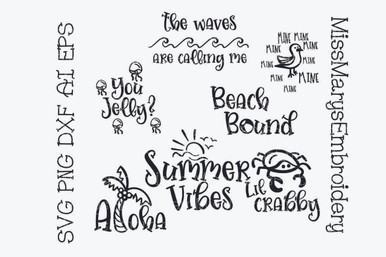 SVG PNG DXF AI EPS
the waves
are calling me
MINE MINE MINE
MINE MINE
MINE MINE
MINE MINE
MINE
You
Jelly?
Beach
Bound
Summer
Vibes
Lil
CRABBY
Aloha
MissMarysEmbroidery